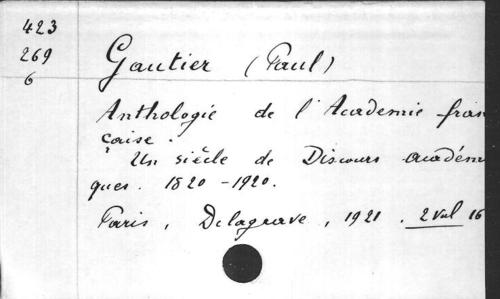 423
269
6
Gautier (Paul)
Anthologie de l'Academie fran
çaise.
Un siècle de Discours académi
ques. 1820-1920.
Paris, Delagrave, 1921. 2 vol 16